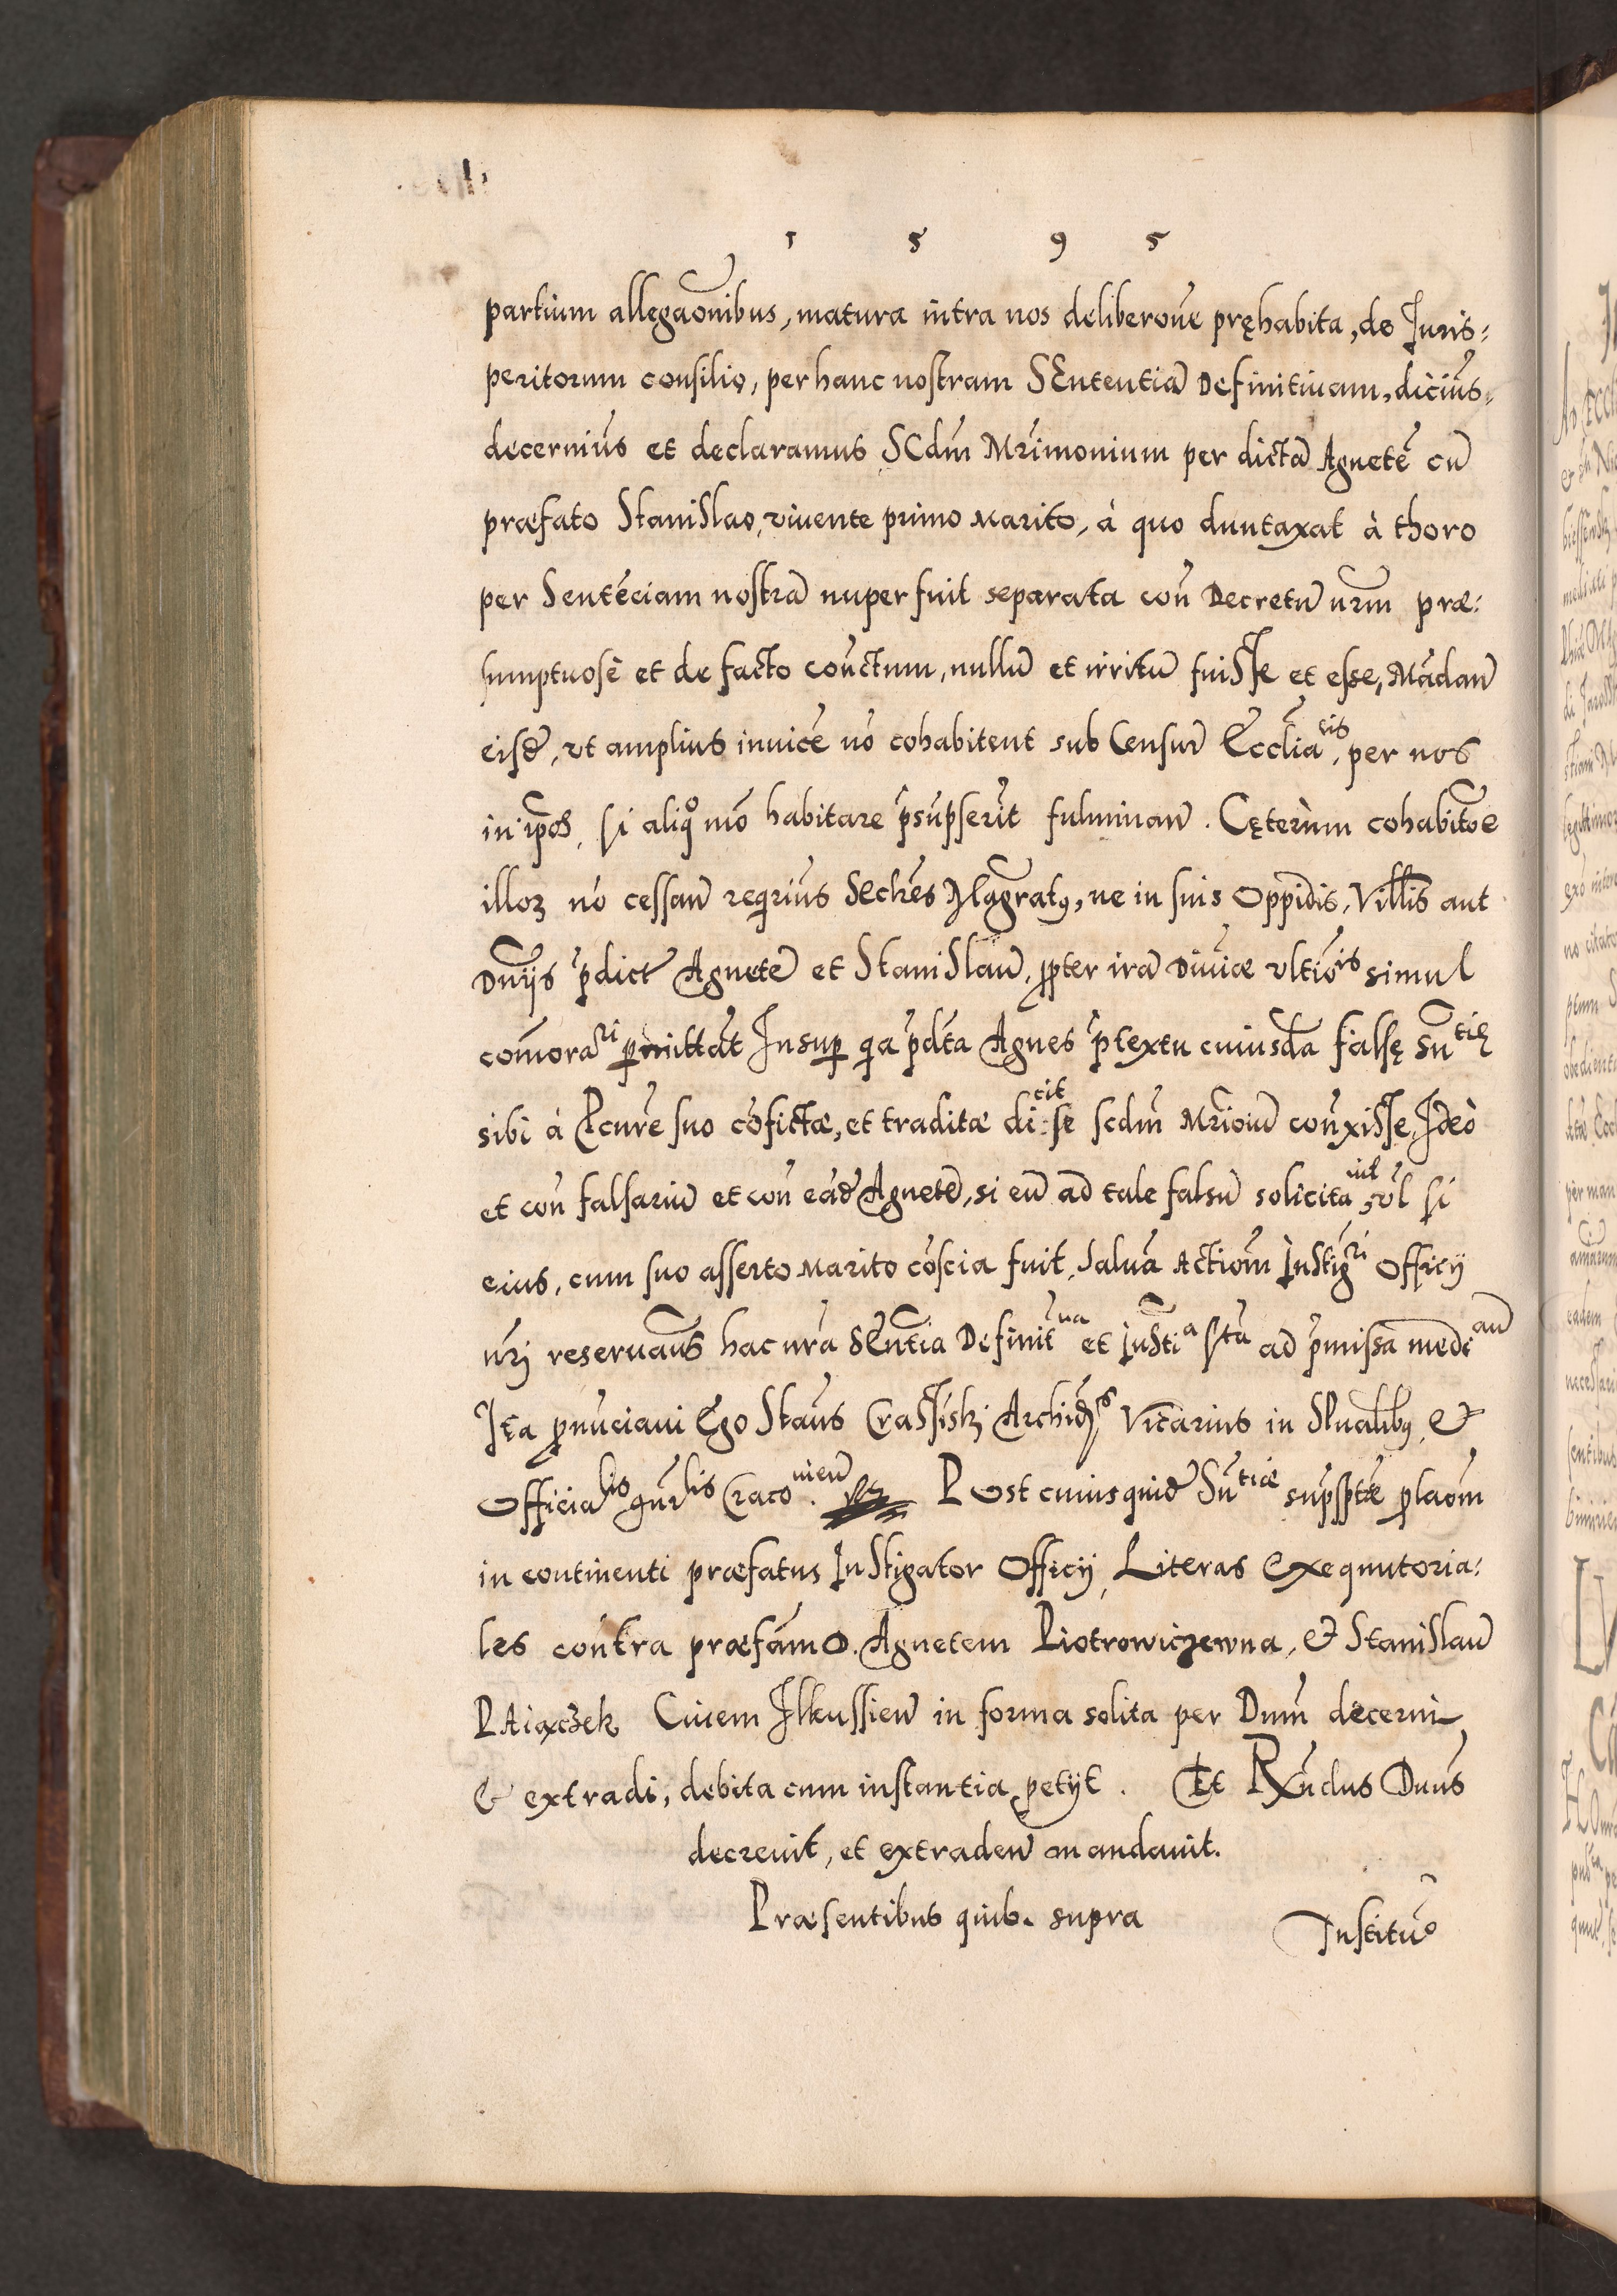 1 5 9 5
partium allegaõnibus, matura intra nos deliberoñe pręhabita, de Juris:
peritorum consilio, per hanc nostram SEntentiã Definitiuam, diciũs,
decerniũs et declaramus SCdm̃ Mr̃imonium per dictã Agnetẽ cũ
præfato Stanislao, viuente primo Marito, à quo duntaxat à thoro
per Sentẽciam nostrã nuper fuit separata coñ Decretũ nr̃m præ:
sumptuosè et de facto coñctum, nullũ et irritũ fuisse et esse, Mãdañ
eisd̃, vt amplius inuicẽ nõ cohabitent sub Censur̃ Ecclia^{cis}, per nos
in ip̃os, si aliq^{o} mõ habitare p̃sũpserit̃ fulminañ. Cęterùm cohabitõe
illoꝝ nõ cessañ reqriũs SEchẽs Mag̃ratꝯ, ne in suis Oppidis, Villis aut
Dñijs p̃dict̃ Agnetẽ et Stanislaũ, ꝓpter irã Diuinæ vltiõis simul
com̃ora^{ri} ꝑmittat̃ Insuꝑ qa p̃dĩta Agnes p̃textu cuiusdã falsę Sñ^{tię}
sibi à Pcur̃e suo cõfictæ, et traditæ di^{cit} se scdm̃ Mr̃ioiũ coñxisse, Ideò
et coñ falsariũ et coñ eãd̃ Agnetẽ, si eũ ad tale falsũ solicita^{uit} vl̃ si
eius, cum suo asserto Marito cõscia fuit, Saluã Actiom̃ Instig^{ri} Officij
nr̃j reseruam̃s hac nr̃a SEñtia Definit^{ua} et Justi^{a} ... ad p̃missa medi^{añ}
Ita ꝓnũciaui Ego Stañs Crassiñski Archid^{s} Vicarius in Spualibꝯ, &
Officia^{lis} gñr^{lis} Craco^{uieñ} Post cuiusquid̃ Sñ^{tiæ} ... ꝓlaõm
in continenti præfatus Instigator Officij, Literas Exequutoria:
les contra præfam̃ O. Agnetem Piotrowiczewna, & Stanislaũ
PAiączek Ciuem Ilkussieñ in forma solita per Dnm̃ decerni
& extradi, debita cum instantia petijt. Et Rx̃ndus Dñus
decreuit, et extradeñ mandauit.
Præsentibus quib. supra
Institũo